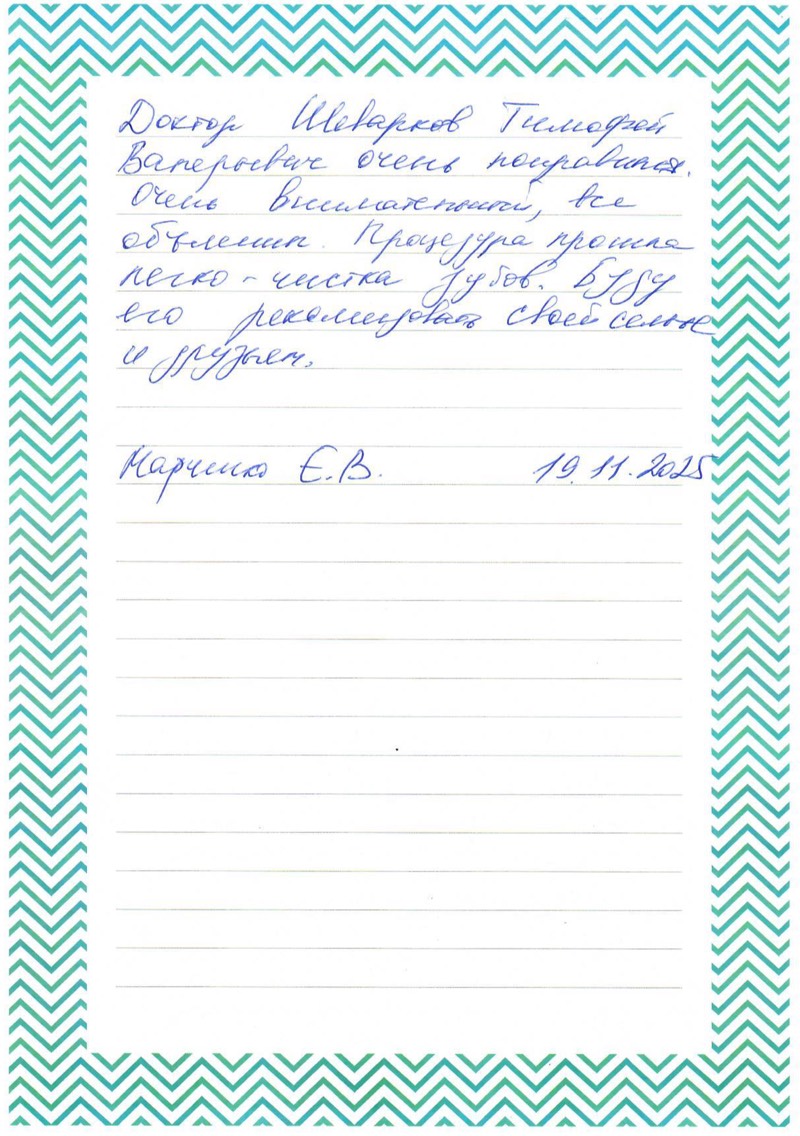 Доктор Шеварков Тимофей
Валерьевич очень понравился.
Очень внимательный, все
объяснил. Процедура прошла
легко - чистка зубов. Буду
его рекомендовать своей семье
и друзьям.
Марченко Е.В. 19.11.2025